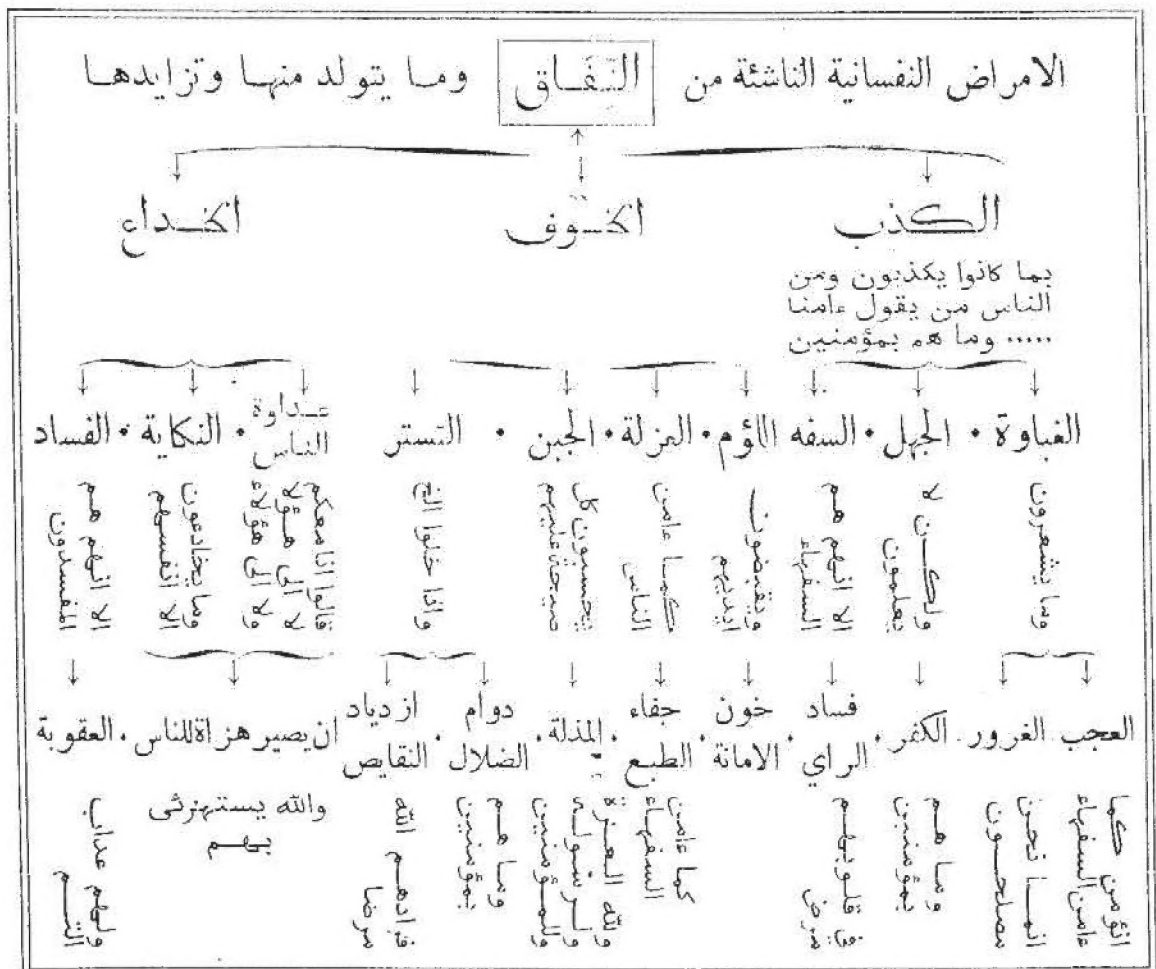 الامراض النفسانية الناشئة من النفاق وما يتولد منها وتزايدها
الكذب
الخوف
الخداع
بما كانوا يكذبون ومن
الناس من يقول ءامنا
..... وما هم بمؤمنين
الغباوة • الجهل • السفه اللؤم • العزلة • الجبن • التستر
عداوة
الناس • النكاية • الفساد
وما يشعرون
ولكن لا
يعلمون
الا انهم هم
السفهاء
ويقبضون
ايديهم
كما ءامن
الناس
يحسبون كل
صيحة عليهم
واذا خلوا الخ
قالوا انا معكم
لا الى هؤلا
ولا الى هؤلاء
وما يخادعون
الا انفسهم
الا انهم هم
المفسدون
العجب • الغرور • الكفر •
فساد
الراي •
خون
الامانة •
جفاء
الطبع •
المذلة •
دوام
الضلال •
ازدياد
النقايص
ان يصير هزاة للناس • العقوبة
انؤمن كما
ءامن السفهاء
انما نحن
مصلحون
وما هم
بمؤمنين
في قلوبهم
مرض
كما ءامن
السفهاء
ولله العزة
ولرسوله
وللمؤمنين
وما هم
بمؤمنين
فزادهم الله
مرضا
والله يستهزئ
بهم
ولهم عذاب
اليم